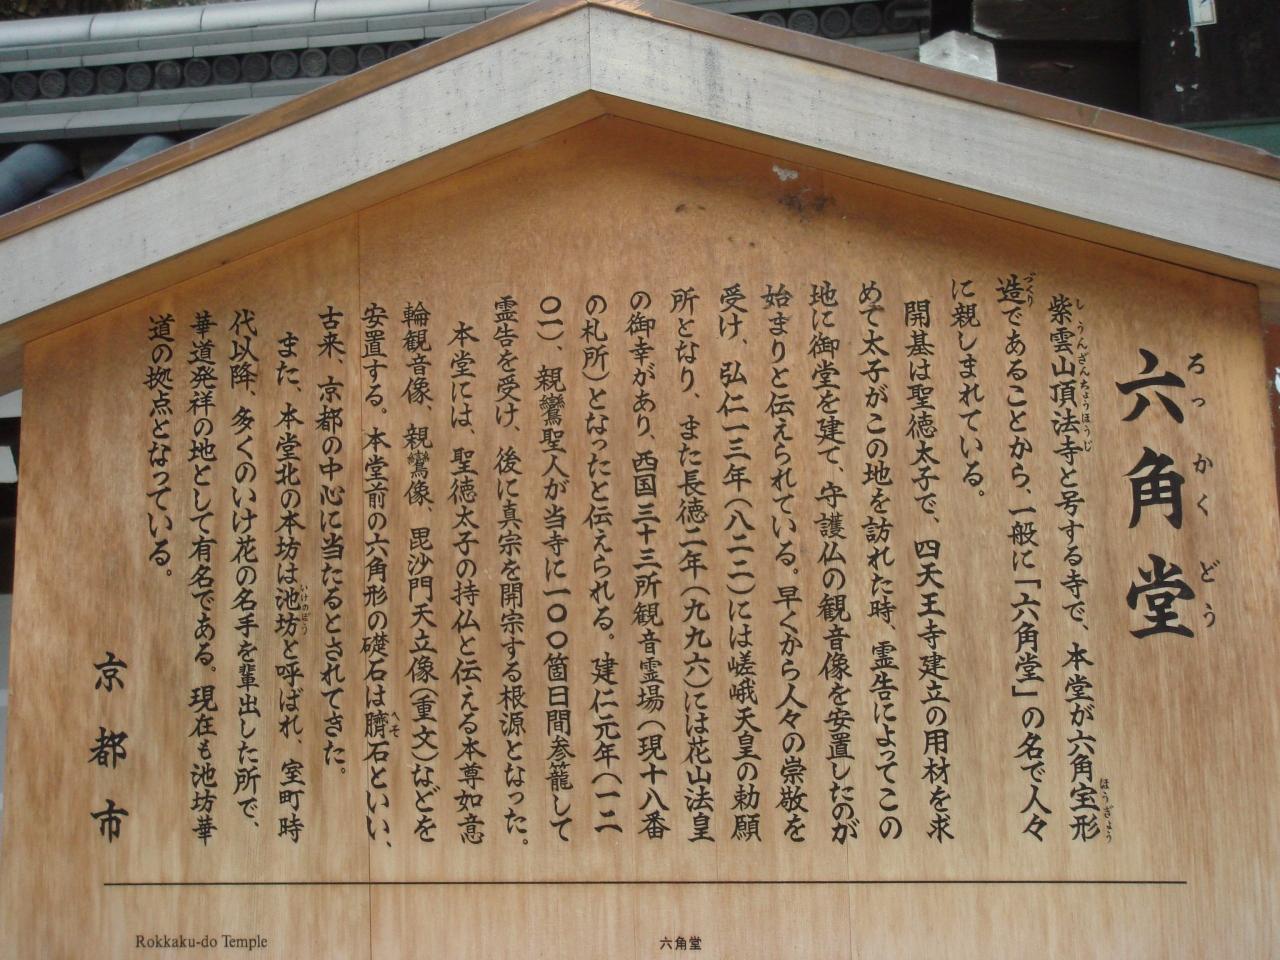 六角堂
ろっかくどう
紫雲山頂法寺と号する寺で、本堂が六角宝形
しうんざんちょうほうじ
ほうぎょう
造であることから、一般に「六角堂」の名で人々
づくり
に親しまれている。
開基は聖徳太子で、四天王寺建立の用材を求
めて太子がこの地を訪れた時、霊告によってこの
地に御堂を建て、守護仏の観音像を安置したのが
始まりと伝えられている。早くから人々の崇敬を
受け、弘仁一三年(八二二)には嵯峨天皇の勅願
所となり、また長徳二年(九九六)には花山法皇
の御幸があり、西国三十三所観音霊場(現十八番
の札所)となったと伝えられる。建仁元年(一二
〇一)、親鸞聖人が当寺に一〇〇箇日間参籠して
霊告を受け、後に真宗を開宗する根源となった。
本堂には、聖徳太子の持仏と伝える本尊如意
輪観音像、親鸞像、毘沙門天立像(重文)などを
安置する。本堂前の六角形の礎石は臍石といい、
へそ
古来、京都の中心に当たるとされてきた。
また、本堂北の本坊は池坊と呼ばれ、室町時
いけのぼう
代以降、多くのいけ花の名手を輩出した所で、
華道発祥の地として有名である。現在も池坊華
道の拠点となっている。
京都市
Rokkaku-do Temple
六角堂